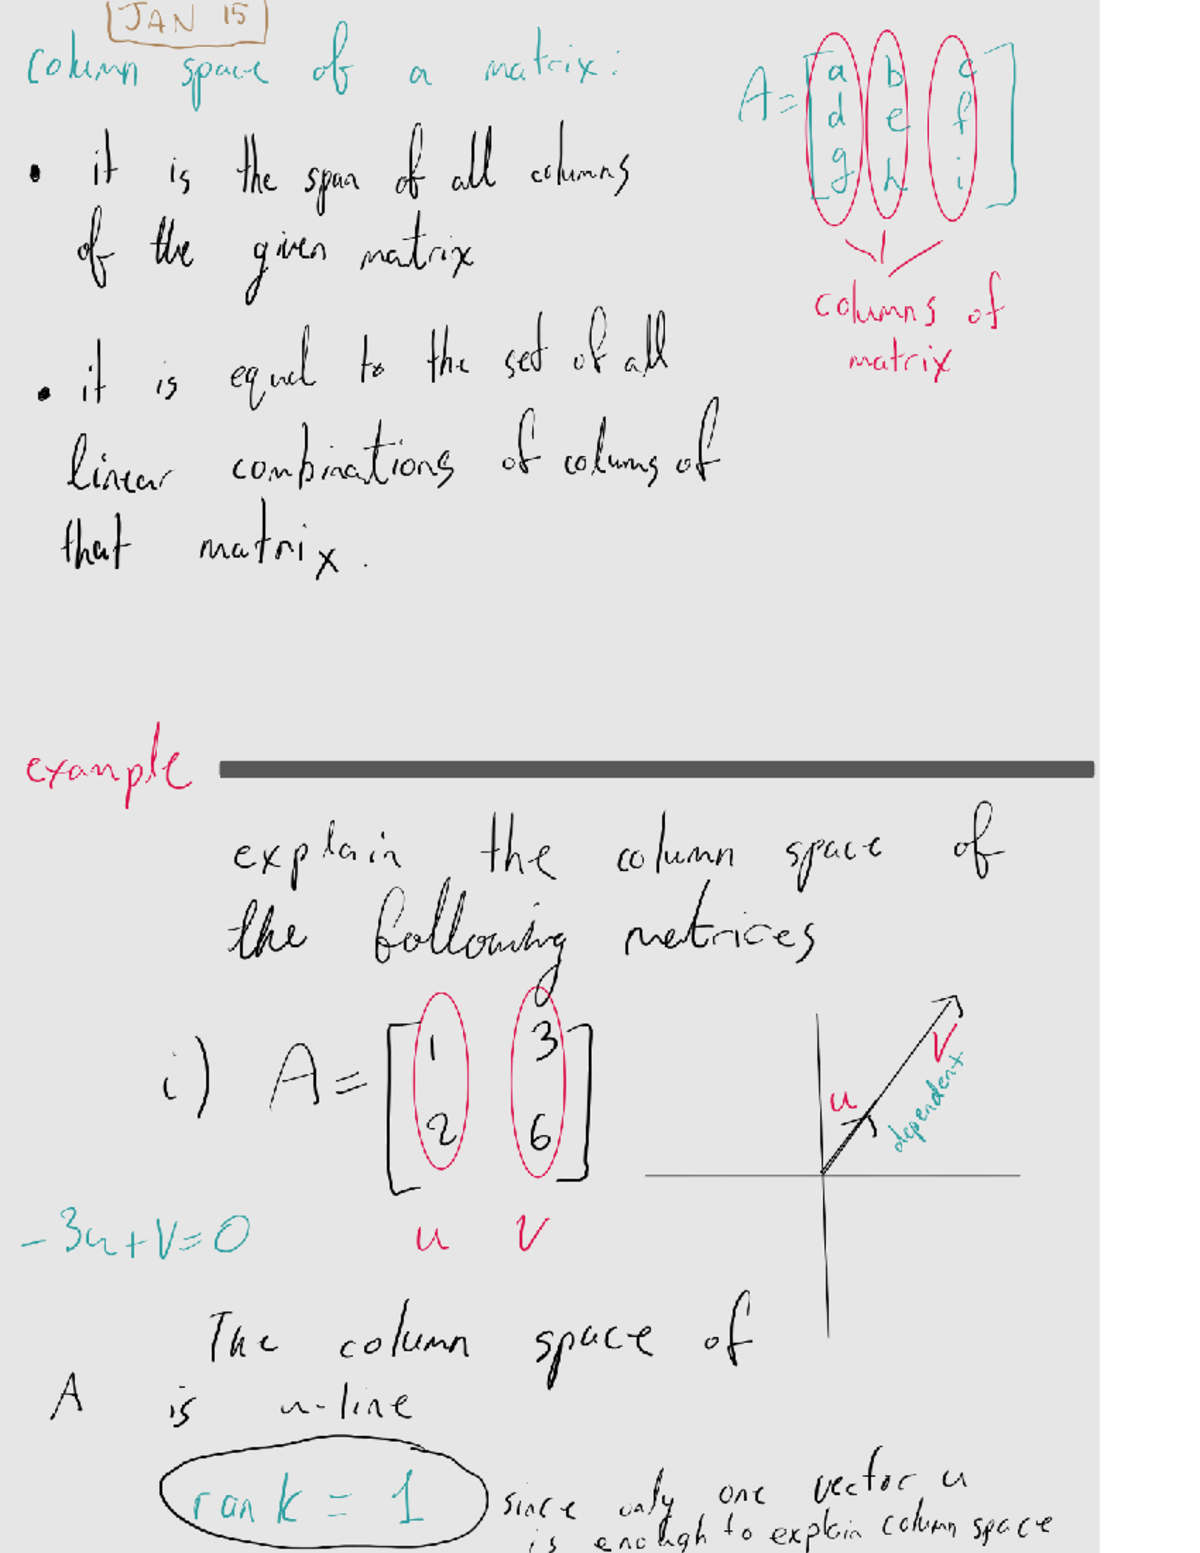 JAN 15
column space of a matrix:
A = [a b c
d e f
g h i]
columns of
matrix
• it is the span of all columns
of the given matrix
• it is equal to the set of all
linear combinations of columns of
that matrix.
example
explain the column space of
the following matrices
i) A = [1 3
2 6]
u v
-3u+v=0
u
v
dependent
The column space of
A is u-line
rank = 1
since only one vector u
is enough to explain column space